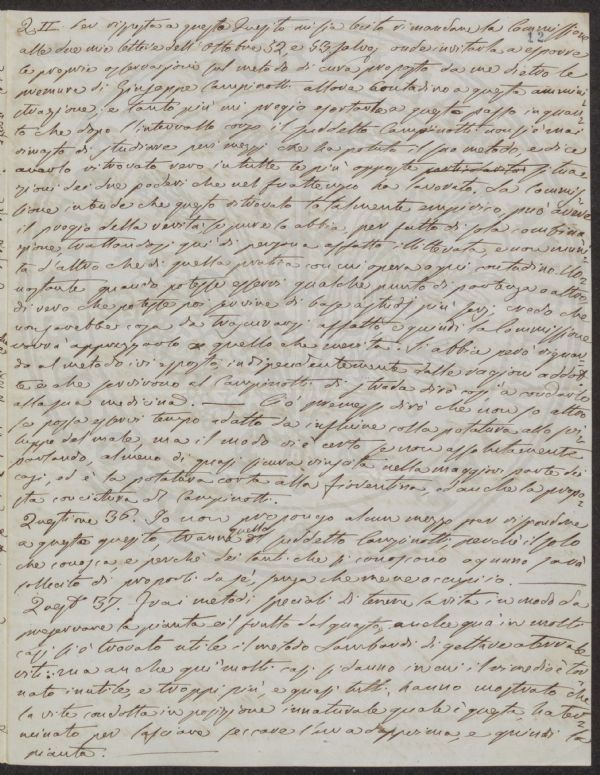 12
Q. II. Per risposta a questo Quesito mi sia lecito rimandare la Commissione
alle due mie lettere dell'Ottobre 52, e 53, onde invitarla a esporre
le proprie osservazioni sul metodo di cura proposto da me dietro le
premure di Giuseppe Campinotti allora contadino a questa ammini-
strazione; e tanto più mi pregio esortarla a questo passo in quan-
to che dopo l'intervallo corso il suddetto Campinotti non si è mai
rimasto di studiare pei mezzi che ha potuto il suo metodo, e dice
averlo ritrovato vero in tutte le più opposte situa-
zioni dei due poderi che nel frattempo ha lavorato. La Commis-
sione intende che questo ritrovato totalmente empirico, può avere
il pregio della verità seppure lo abbia, per fatto di sola combina-
zione, trattandosi qui di persona affatto illetterata, e non muni-
ta d'altro che di quella pratica con cui opera ogni contadino. No-
nostante quando potesse esservi qualche punto di partenza o altro
di vero che potesse poi servire di base a studj più serj, credo che
non sarebbe cosa da trascurarsi affatto e quindi la Commissione
vorrà apprezzarlo quello che merita. Si abbia però riguar-
do al metodo ivi esposto, indipendentemente dalle ragioni addot-
te e che servirono al Campinotti di strada dirò così a condurlo
alla sua medicina. Ciò premesso dirò che non so altro
se possa esservi tempo adatto da influire colla potatura allo svi-
luppo del male, ma il modo vi è certo se non assolutamente
parlando, almeno di quasi sicura riuscita nella maggior parte dei
casi, ed è la potatura corta alla fiorentina, ed anche la propo-
sta conciatura del Campinotti.
Questione 36. Io non propongo alcun mezzo per rispondere
a questo quesito, tranne quello del suddetto Campinotti, perchè il solo
che conosca e perchè dei tanti che si conoscono ognuno sarà
sollecito di proporli da sè, senza che me ne occupi io.
Quest. 37. Fra i metodi speciali di tenere la vite in modo da
preservare la pianta e il frutto dal guasto, anche qua in molti
casi si è trovato utile il metodo Lombardi di gettare a terra le
viti: ma anche qui molti casi si danno in cui il rimedio è tor-
nato inutile, e troppi più, e quasi tutti, hanno mostrato che
la vite condotta in posizione innaturale quale è questa, ha ter-
minato per lasciare seccare l'uva dapprima, e quindi la
pianta.